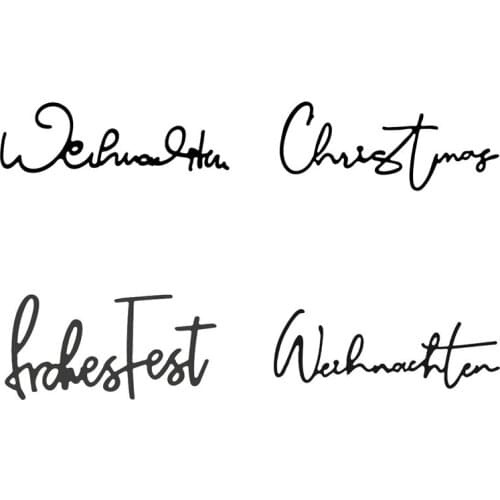 Weihnachten
Christmas
frohes Fest
Weihnachten